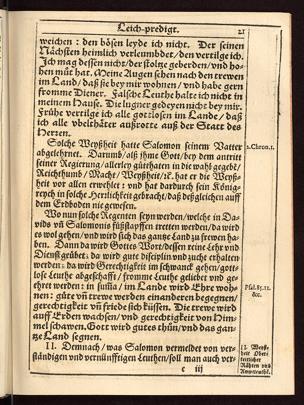 Leich-predigt. 21
weichen : den bösen leyde ich nicht. Der seinen
Nächsten heimlich verleumbdet / den vertilge ich.
Ich mag dessen nicht / der stoltze geberden / vnd ho-
hen mut hat. Meine Augen sehen nach den trewen
im Land / daß sie bey mir wohnen / vnd habe gern
fromme Diener. Falsche Leuthe halte ich nicht in
meinem Hause. Die lugner gedeyen nicht bey mir.
Frühe vertilge ich alle gottlosen im Lande / daß
ich alle vbelthäter außrotte auß der Statt des
Herren.
Solche Weyßheit hatte Salomon seinem Vatter
abgelehrnet. Darumb / alß ihme Gott / bey dem antritt
seiner Regierung / allerley güthaten in die wahl gegebẽ /
Reichthumb / Macht / Weyßheit / ꝛc. hat er die Weyß-
heit vor allen erwehlet : vnd hat dardurch sein König-
reych in solche Herrlichkeit gebracht / daß deßgleichen auff
dem Erdboden nie gewesen.
1. Chron. 1.
Wo nun solche Regenten seyn werden / welche in Da-
vids vñ Salomonis fůßstapffen tretten werden / da wird
es wol gehen / vnd wird sich das gantze Land zu frewen ha-
ben. Dann da wird Gottes Wort / dessen reine Lehr vnd
Dienst grünẽ : da wird gute disciplin vnd zucht erhalten
werdẽ : da wird Gerechtigkeit im schwanck gehen / gott-
lose Leuthe abgeschafft / fromme Leuthe geliebet vnd ge-
ehret werden : in sum̃a / im Lande wird Ehre woh-
nen : güte vñ trewe werden einanderen begegnen /
gerechtigkeit vñ friede sich küssen. Die trewe wird
auff Erden wachsen / vnd gerechtigkeit von Him-
mel schawen. Gott wird gutes thün / vnd das gan-
tze Land segnen.
Psal. 85. 11.
&c.
II. Demnach / was Salomon vermeldet von ver-
ständigen vnd vernünfftigen Leuthen / soll man auch ver-
Weyß-
heit Ober-
keitlicher
Räthen vnd
Amptleuth.
c iij